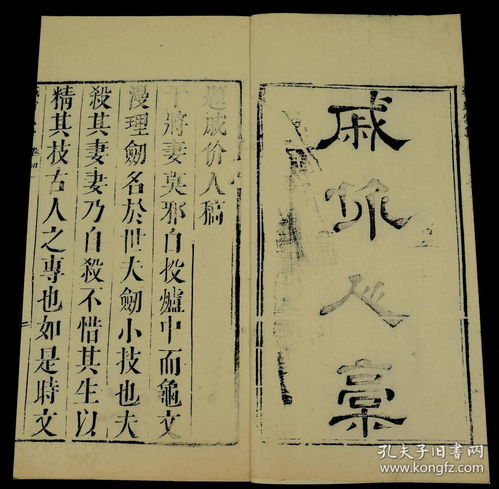 戚价人稾
題戚价人稿
干將妻莫邪自投爐中而龜文
漫理劒名於世夫劒小技也夫
殺其妻妻乃自殺不惜其生以
精其技古人之專也如是時文
孔夫子旧书网
www.kongfz.com